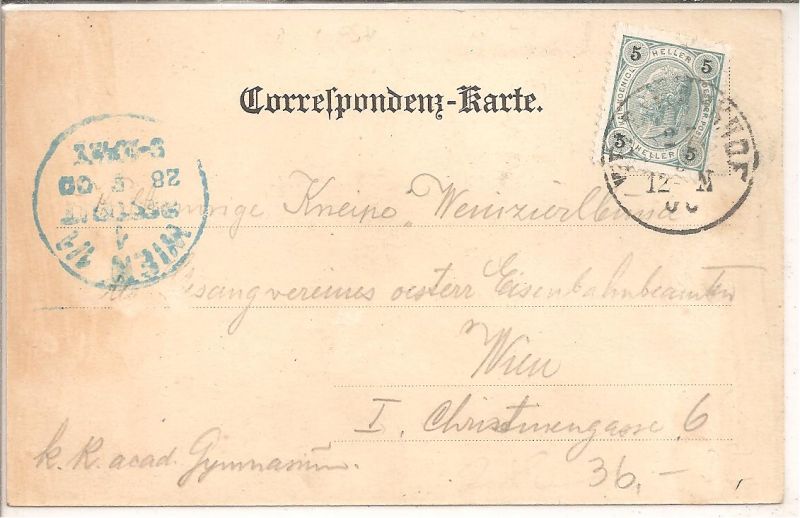 Correspondenz-Karte.
5 HELLER 5
5 HELLER 5
12 N
00
WIEN 1/1
28 5 00
Kneipe "Weinzierlbund"
Gesangvereines oesterr Eisenbahnbeamten
Wien
I. Christinengasse 6
k. k. acad. Gymnasium.
36,-